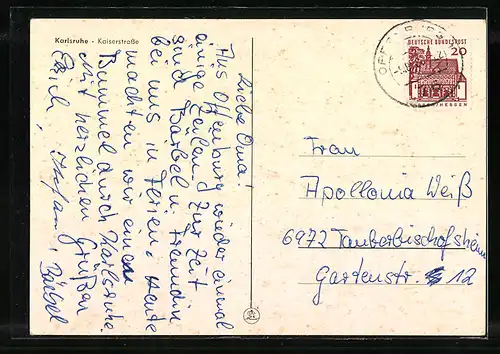 Karlsruhe - Kaiserstraße
Liebe Oma!
Aus Offenburg wieder einmal
einige Zeilen. Zur Zeit
sind Bärbel u. Freundin
bei uns in Ferien. Heute
machten wir einen
Bummel durch Karlsruhe.
Mit herzlichen Grüßen
Erich, Stefan, Bärbel
DEUTSCHE BUNDESPOST
20
HESSEN
Frau
Apollonia Weiß
6972 Tauberbischofsheim
Gartenstr. 12